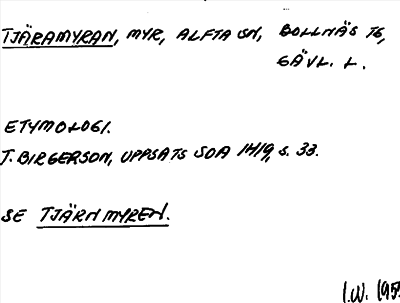 TJÄRAMYRAN, MYR, ALFTA SN, BOLLNÄS TG,
GÄVL. L.
ETYMOLOGI.
J. BIRGERSON, UPPSATS SOA 1419, s. 33.
SE TJÄRNMYREN.
I.W. 195